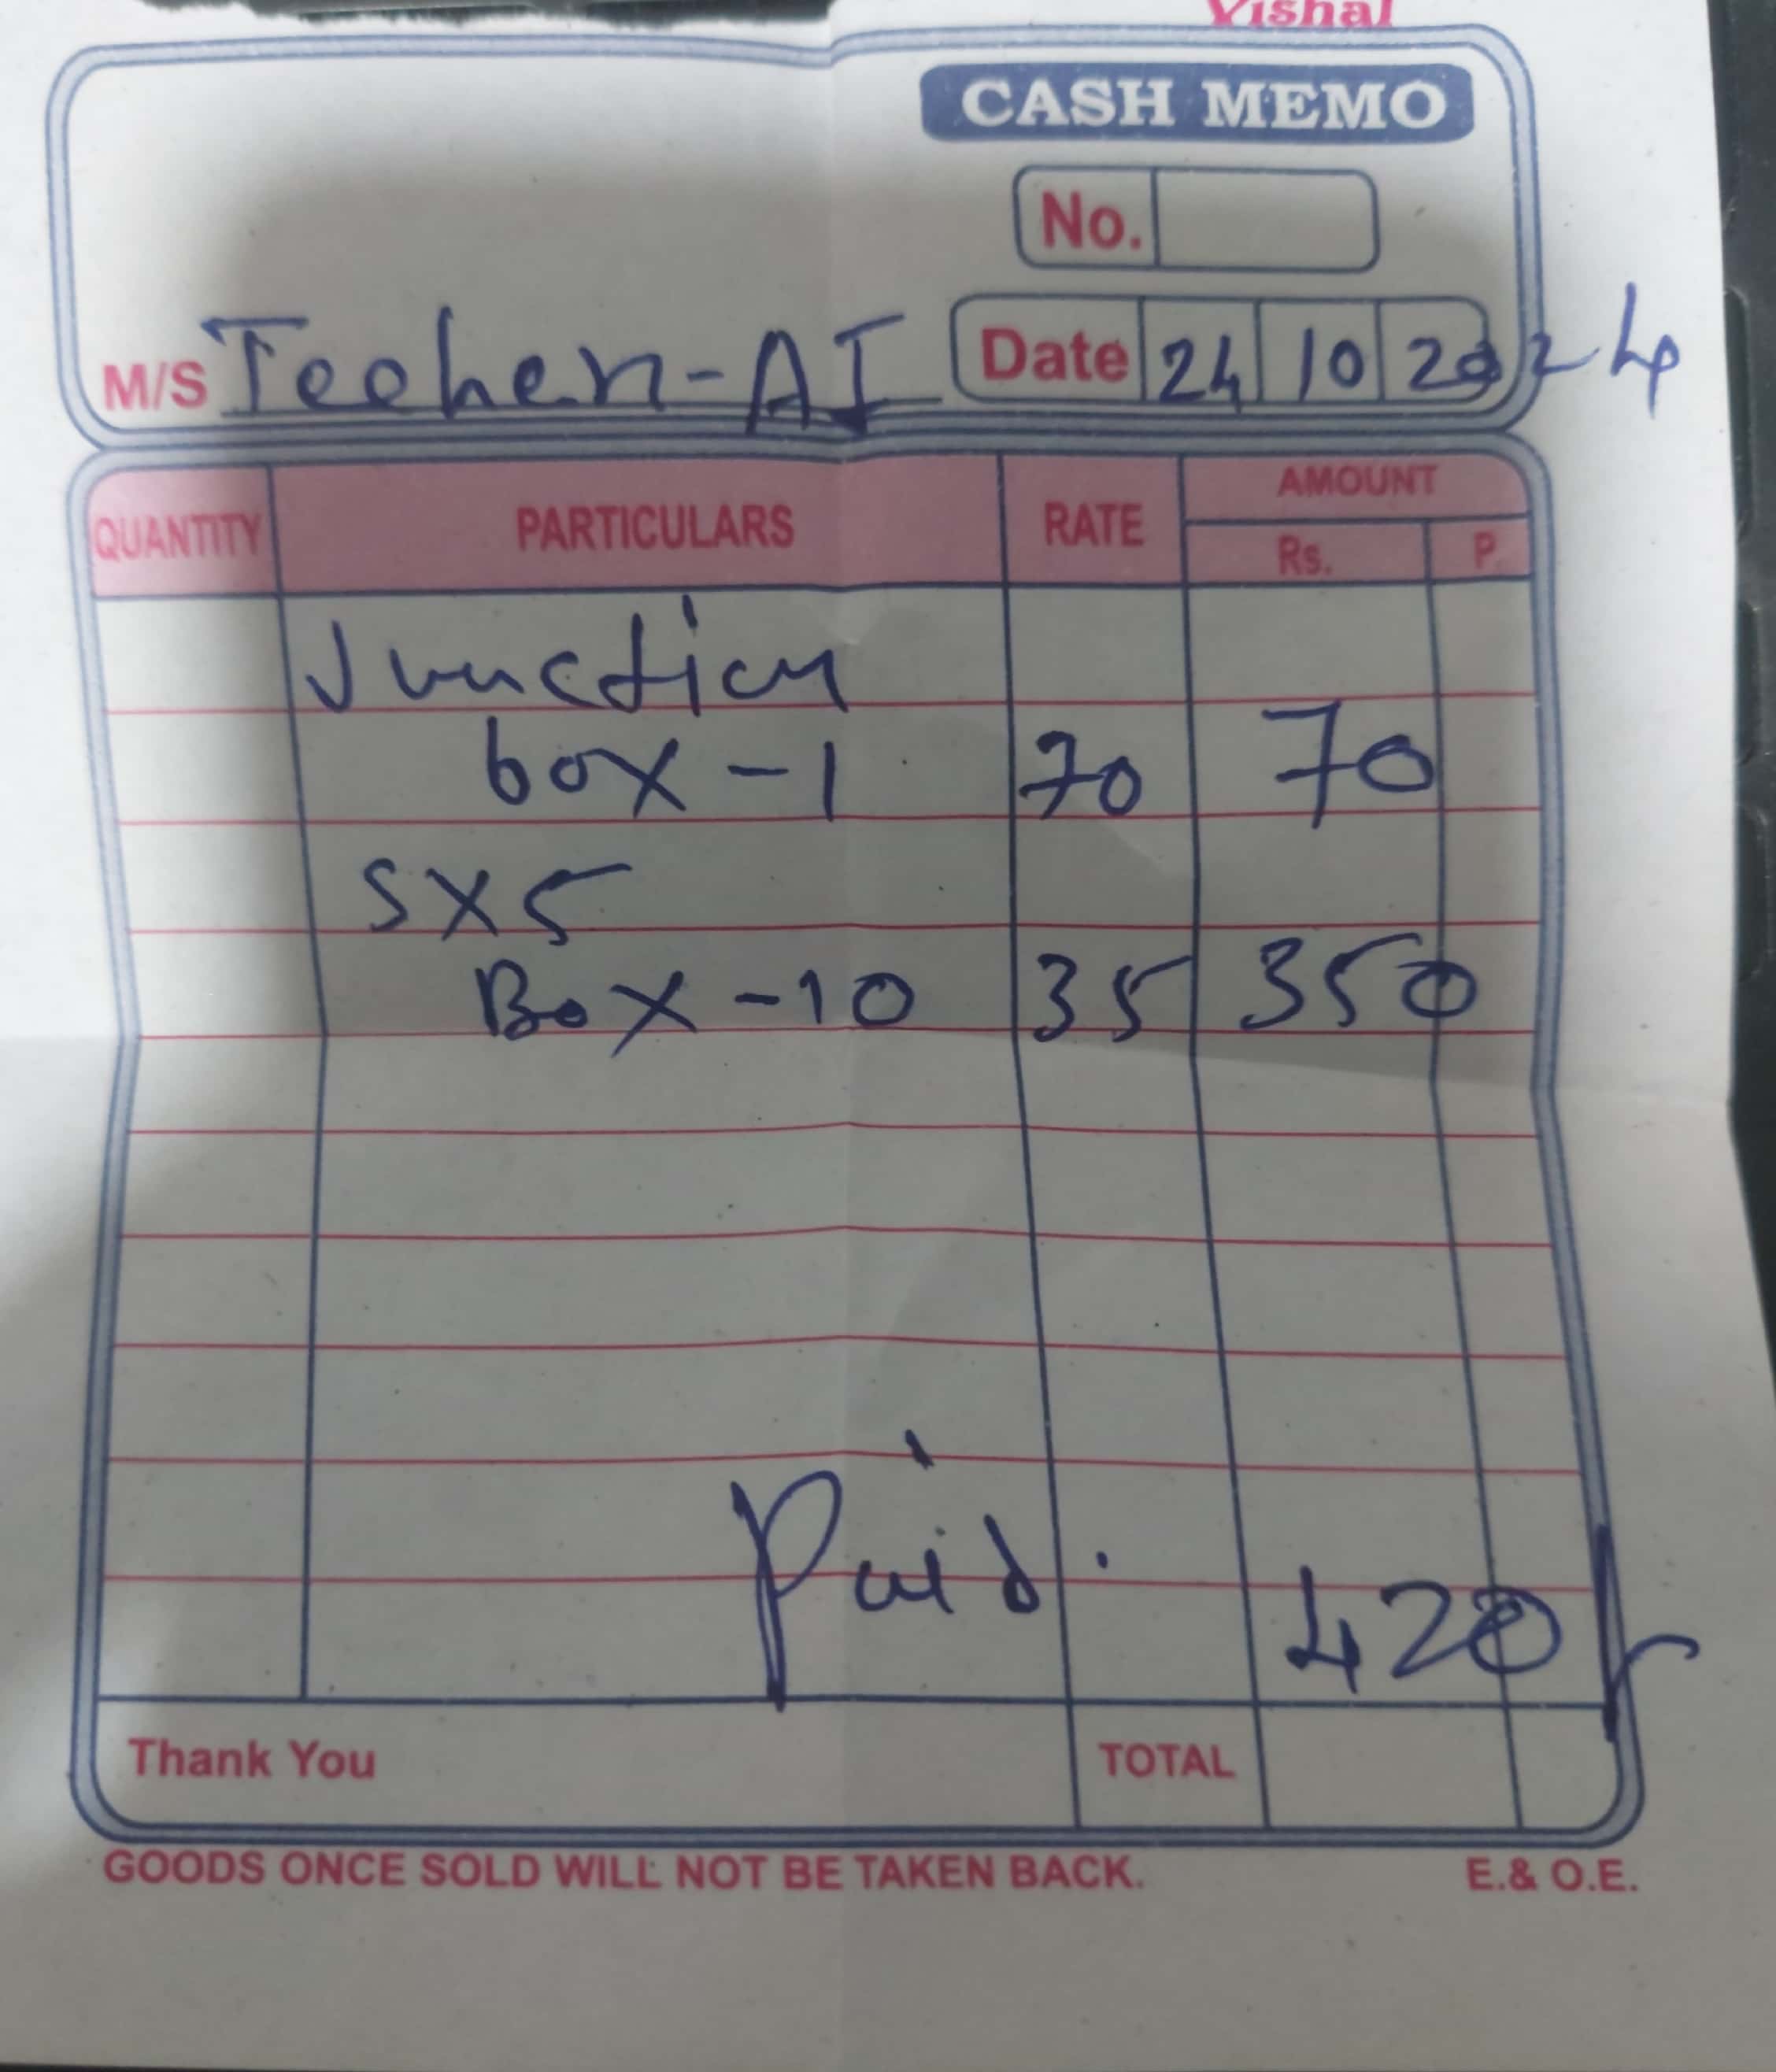 Vishal
CASH MEMO
No.
M/S Teehen-AI Date 24 10 2024
QUANTITY PARTICULARS RATE AMOUNT
Rs. P.
Junction
box-1 70 70
5x5
Box-10 35 350
Paid. 420
Thank You TOTAL
GOODS ONCE SOLD WILL NOT BE TAKEN BACK. E.& O.E.